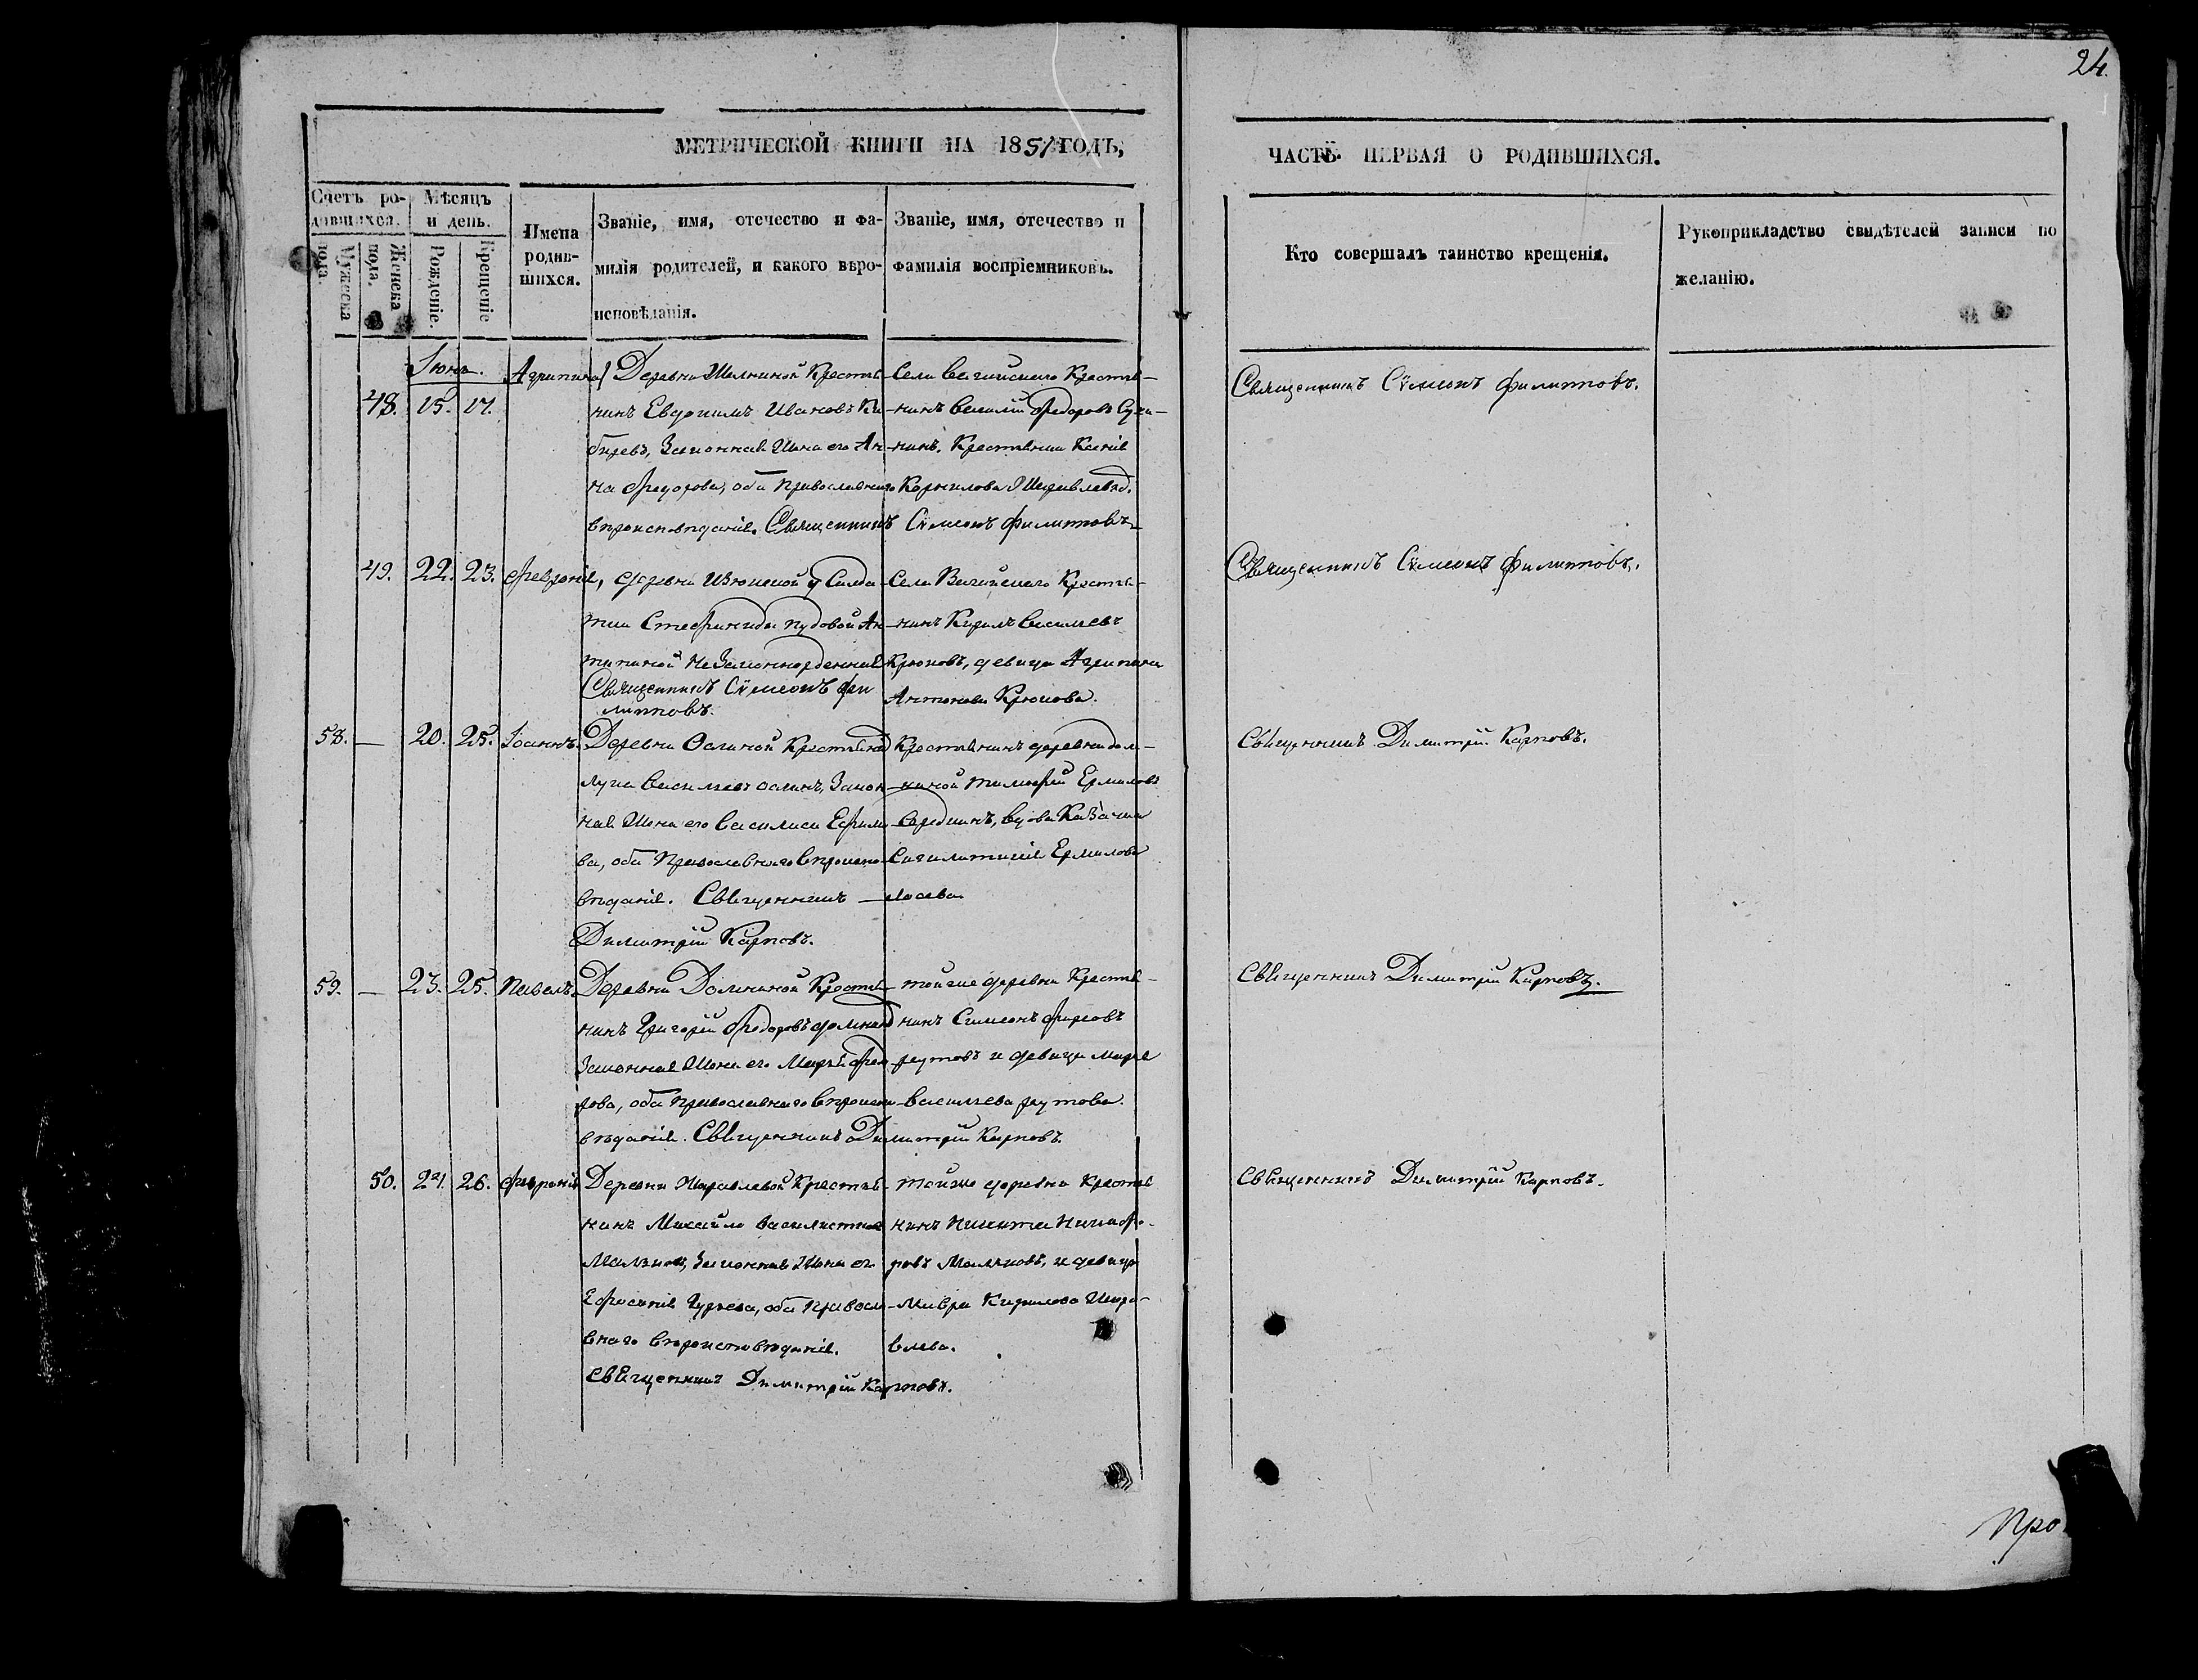 24.
МЕТРИЧЕСКОЙ КНИГИ НА 1851 ГОДЪ,
ЧАСТЬ ПЕРВАЯ О РОДИВШИХСЯ.
Счетъ ро-
дившихся.
Мужеска
пола.
Женска
пола.
Мѣсяцъ
и день.
Рожденіе.
Крещеніе
Имена
родив-
шихся.
Званіе, имя, отечество и фа-
милія родителей, и какого вѣро-
исповѣданія.
Званіе, имя, отечество и
фамилія воспріемниковъ.
Кто совершалъ таинство крещенія.
Рукоприкладство свидѣтелей записи по
желанію.
Іюнь.
48. 15. 17.
Агрипина
Деревни Крестья-
нинъ Ивановъ
Законная Жена его Ан-
на Федорова, оба Православнаго
вѣроисповѣданія. Священникъ Сѵмеонъ Филипповъ
Села Вагайскаго Крестья-
нинъ Василій Федоровъ
нинъ, Крестьянка Ксенія
Корнилова
Священникъ Сѵмеонъ Филипповъ.
49. 22. 23. Февронія,
деревни у Солда-
тки Степаниды Пудовой Ан-
типиной Незаконнорожденная
Священникъ Сѵмеонъ Фи
липповъ.
Села Вагайскаго Крестья-
нинъ Кирилъ Васильевъ
Крюковъ, девица Агрипина
Антонова Крюкова.
Священникъ Сѵмеонъ Филипповъ.
58. — 20. 25. Іоаннъ.
Деревни Ослиной Крестьянинъ
Лука Васильевъ Ослинъ, Закон
ная Жена его Василиса Ефимо
ва, оба Православнаго вѣроиспо
вѣданія. Священникъ
Димитрій Карповъ.
Крестьянинъ деревни Дол-
киной Тимофей Ермиловъ
вдова Казачка
Ермилова
Лосева
Священникъ Димитрій Карповъ.
59. — 23. 25. Павелъ.
Деревни Крестья
нинъ Григорій Федоровъ
Законная Жена его Марья Федо
рова, оба Православнаго вѣроиспо
вѣданія. Священникъ Димитрій Карповъ.
той же деревни Крестья-
нинъ Симеонъ Фирсовъ
Реутовъ и девица Марья
Васильева Реутова.
Священникъ Димитрій Карповъ.
50. 24. 26. Февронія
Деревни Журавлевой Крестья-
нинъ Михайло
Законная Жена его
Ефросинія Гурьева, оба Правосла-
внаго вѣроисповѣданія.
Священникъ Димитрій Карповъ.
Той же деревни Крестья
нинъ Никита Никифо-
ровъ и девица
Мавра Кирилова Жура-
влева.
Священникъ Димитрій Карповъ.
Про